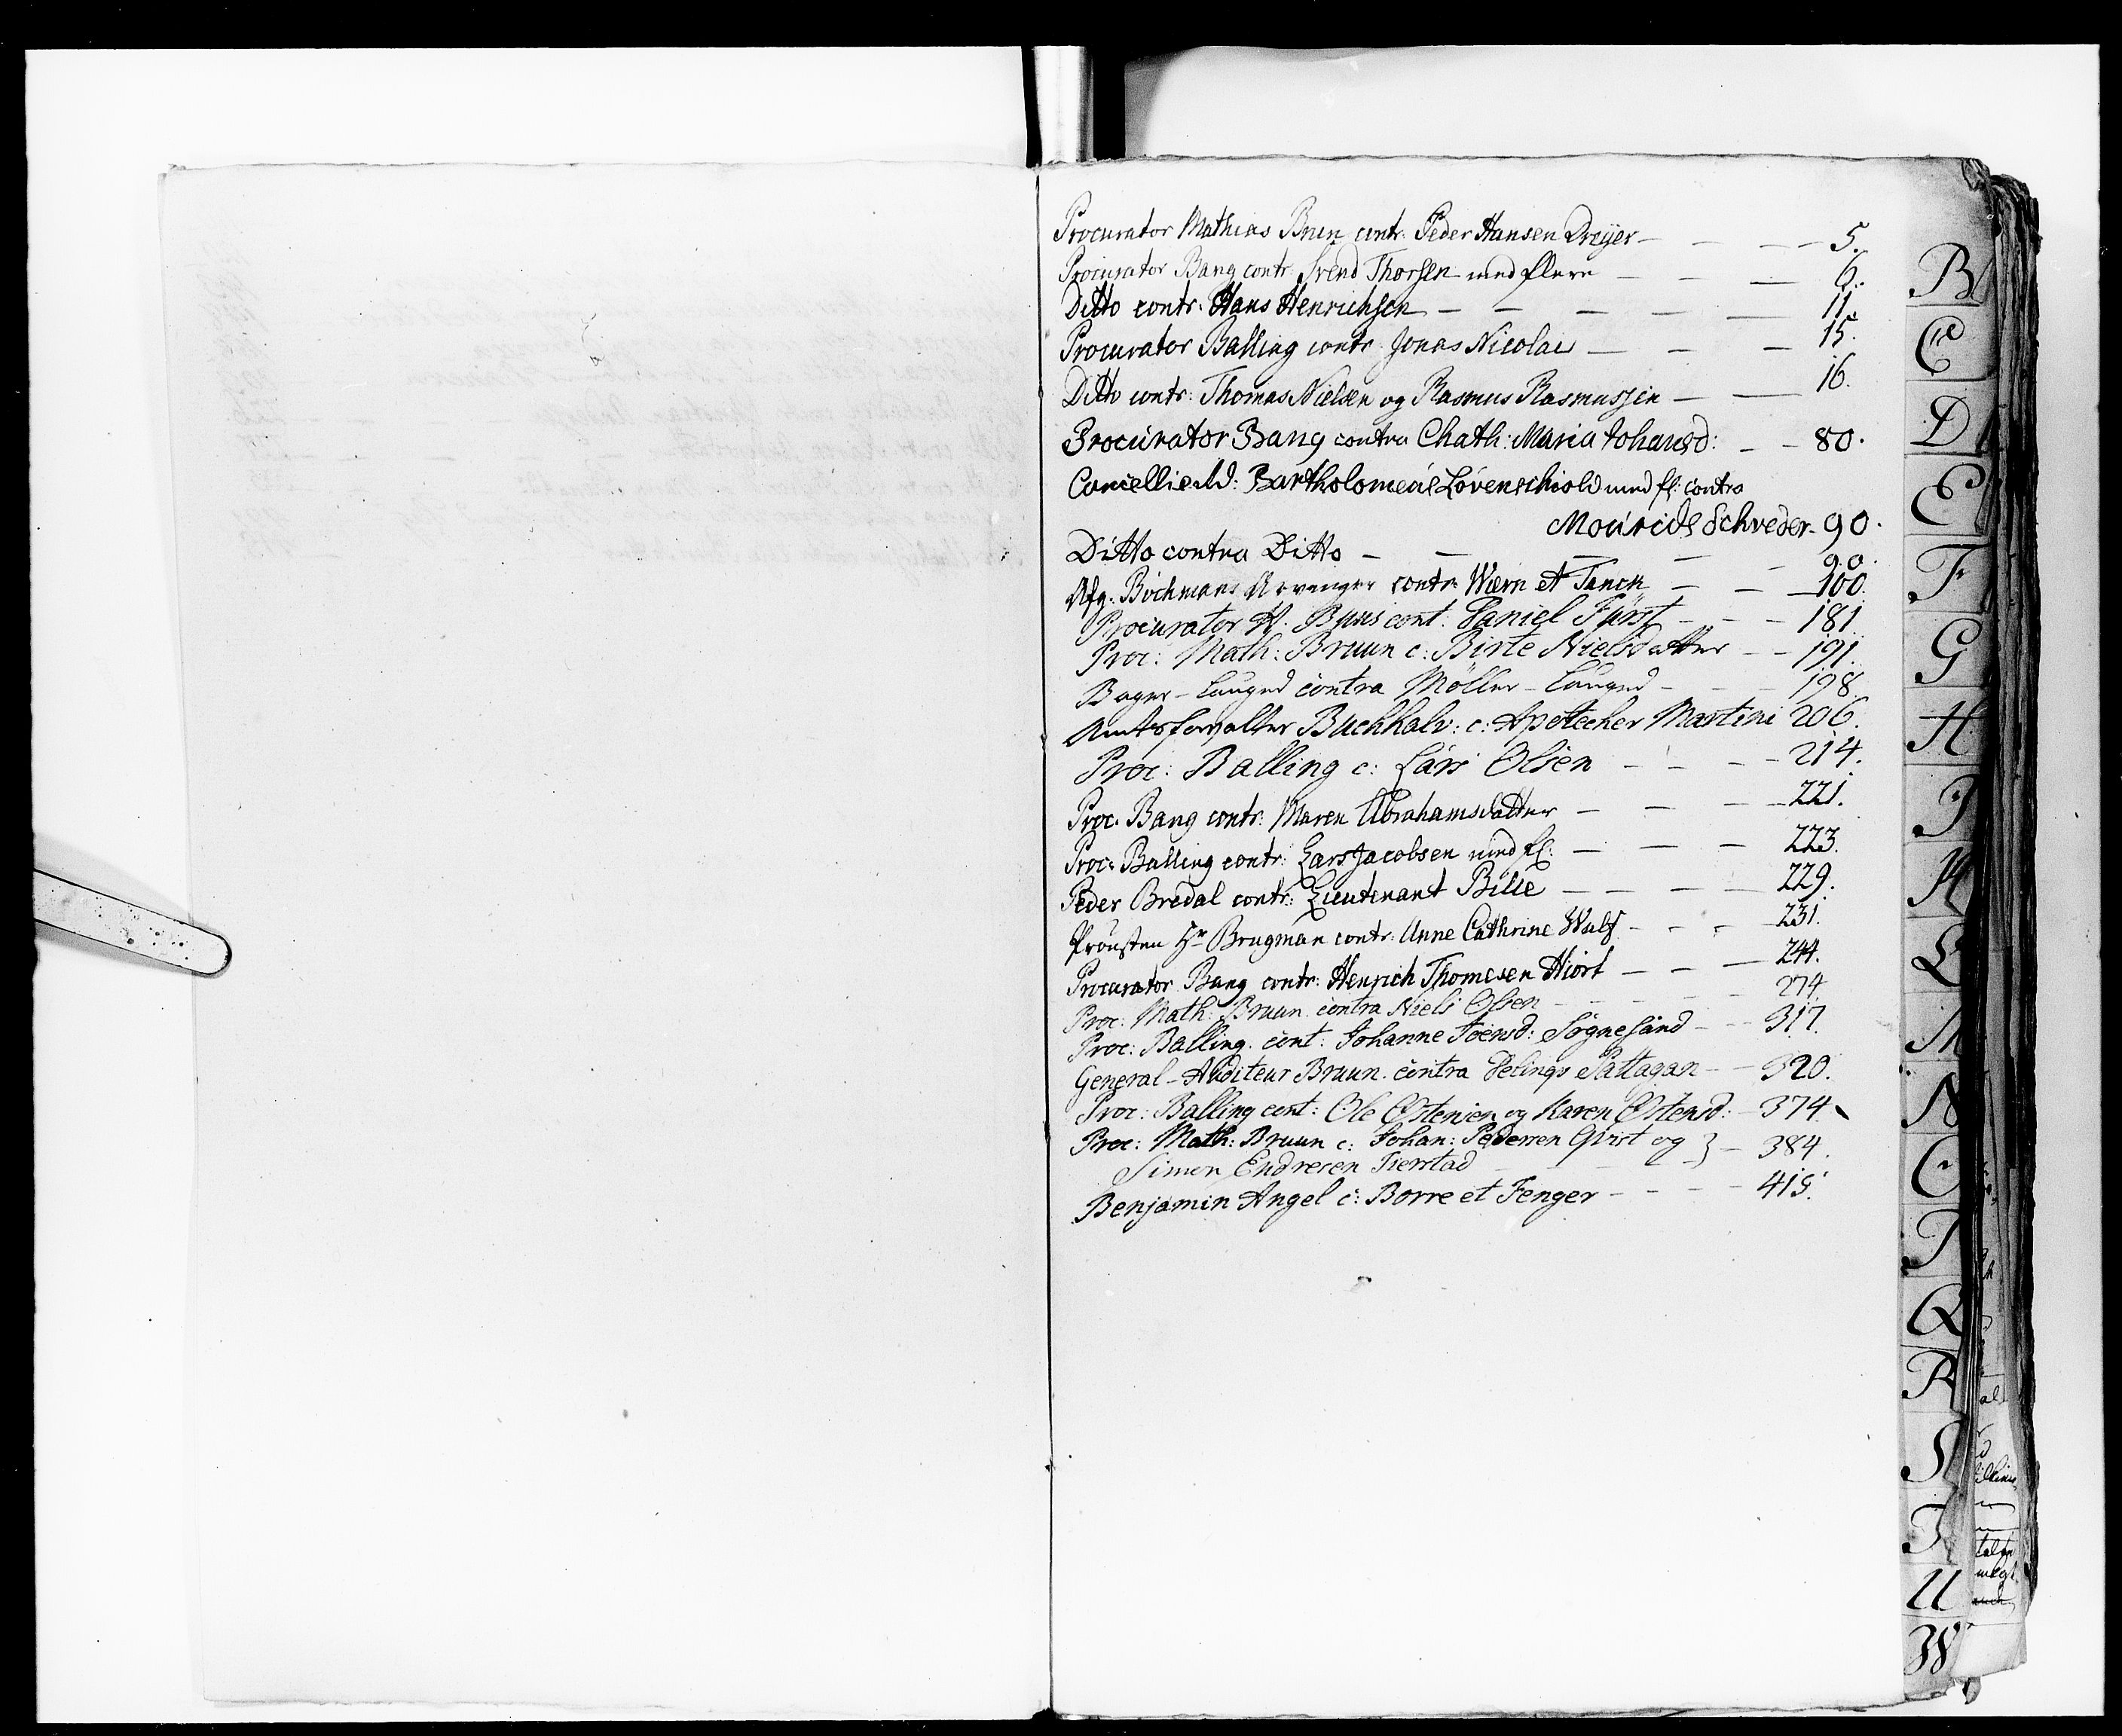 Procurator Mathias Brun contr: Peder Hansen Dreÿer — — — 5.
Procurator Bang contr. Svend Thorsen med flere — — — 6.
Ditto contr. Hans Henrichsen — — — — — 11.
Procurator Balling contr. Jonas Nicolai — — — 15.
Ditto contr: Thomas Nielsen og Rasmus Rasmussen — — 16.
Procurator Bang contra Chath: Maria Johansd: — — 80.
Cancellie : Bartholomeus Lövenschiold med fl: contra
Mourids Schreder - 90.
Ditto contra Ditto — — — — — 90.
Afg. Böchmans Arvinger contr. Wærn et Tanck — — — 100.
Procurator Bruns cont: Daniel Fürst — — — 181.
Proc: Math: Bruun c: Birte Nielsdatter — — 191.
Bager-Lauged contra Möller-Lauged — — — 198.
Amtsforvalter Buchhalv: c: Apothecher Martini 206.
Proc: Balling c: Lars Olsen — — — — 214.
Proc. Bang contr: Maren Abrahamsdatter — — — 221.
Proc: Balling contr: Lars Jacobsen med fl: — — — 223.
Peder Bredal contr: Lieutenant Bille — — — — 229.
Prousten Hr Brugman contr: Anne Cathrine Wulf — — — 231.
Procurator Bang contr: Henrich Thomesen Hiort — — — 244.
Proc: Math: Bruun contra Niels Olsen — — — — 274
Proc: Balling cont: Johanne Joensd: Sognesand — — 317.
General-Auditeur Bruun contra Pallagan — — 320.
Proc: Balling cont: Ole Ostensen og Karen Ostensd: — 374.
Proc: Math: Bruun c: Johan: Pedersen Qvist og } — 384.
Simon Endresen Tierstad
Benjamin Angel c: Borre et Fenger — — — — 415.
B
C
D
E
F
G
H
I
K
L
M
N
O
P
Q
R
S
T
U
W